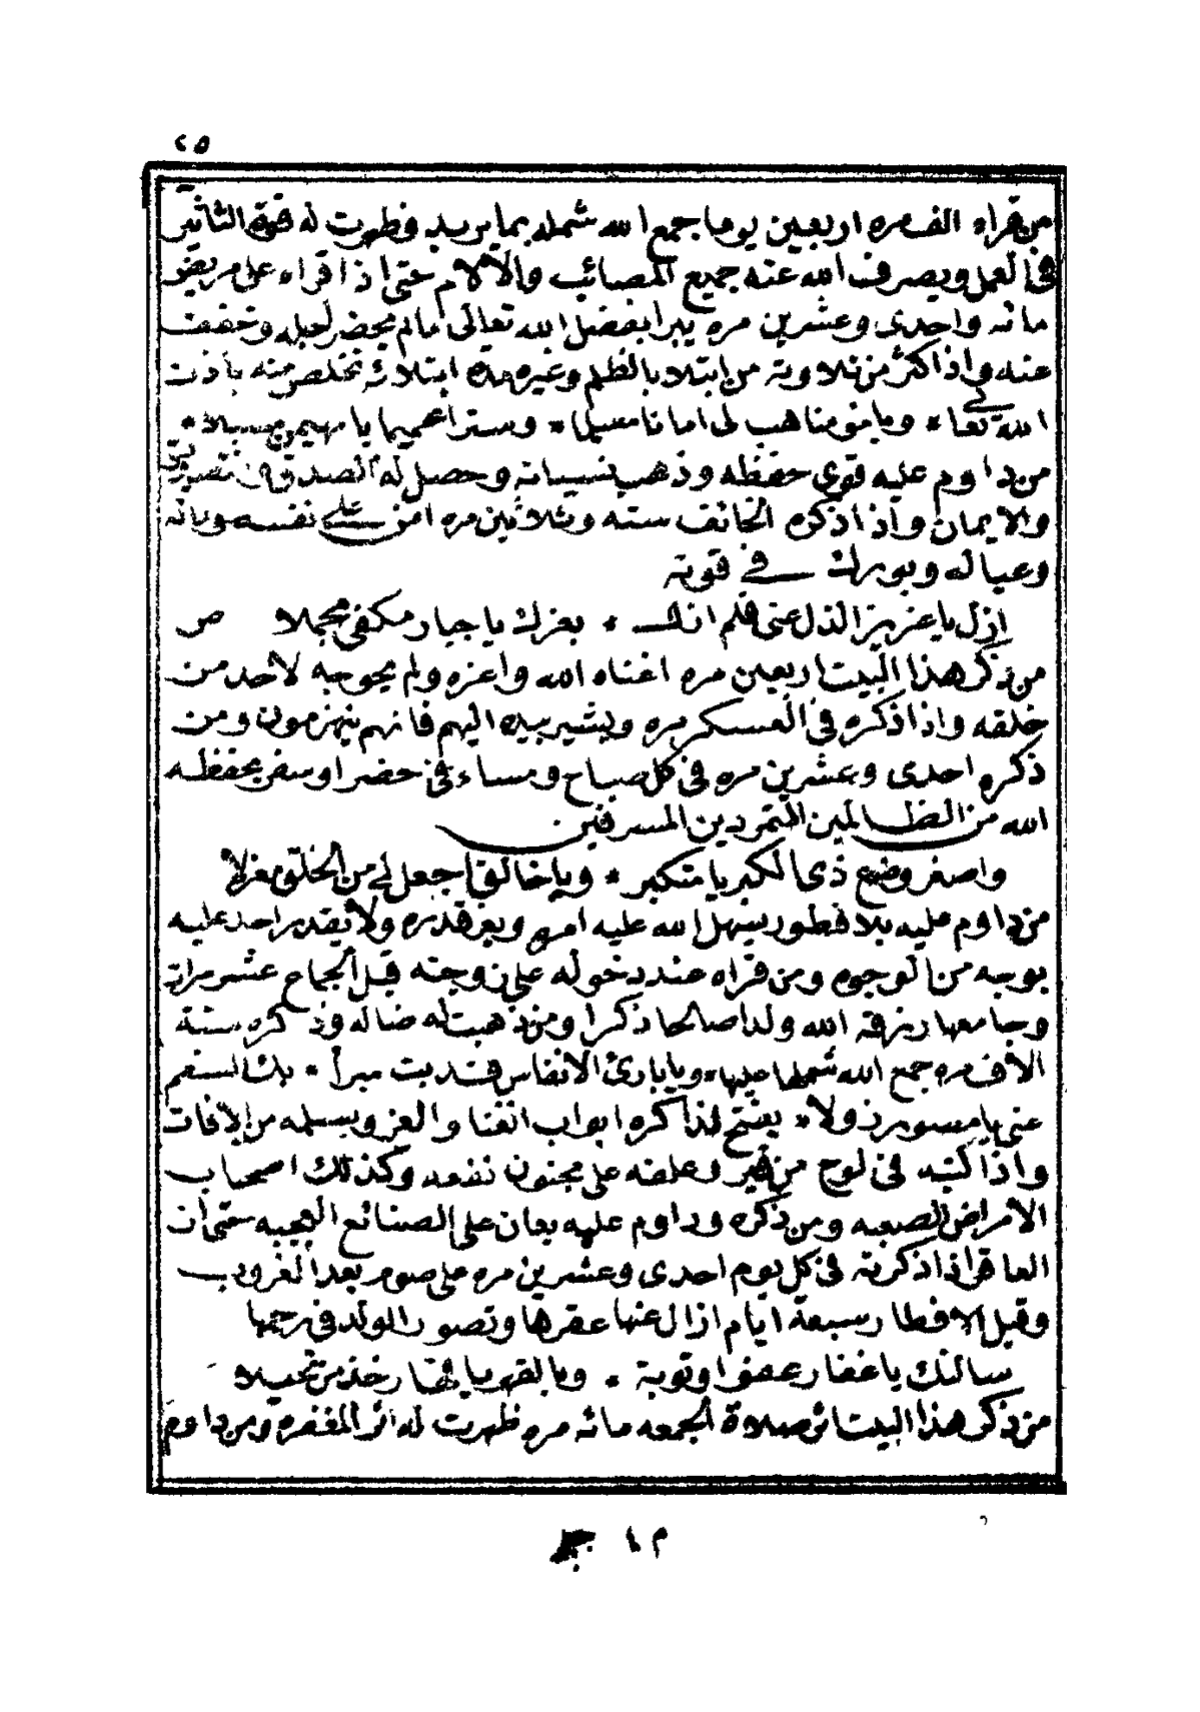 ٢٥
من قراه الف مره اربعين يوما جمع الله شمله بما يريد وظهرت له قوة التاثير
فى العمل ويصرف الله عنه جميع المصائب والآلام حتى اذا قراه على مريض
مائه واحدى وعشرين مره يبرا بفضل الله تعالى مالم يحضر اجله وخففت
عنه واذا اكثر من تلاوته من ابتلا بالظلم وغيره مدة ابتلائه تخلص منه باذن
الله تعالى * ويا مؤمنا هب لى امانا مسلما * وسترا عميما يا مهيمن مسبلا *
من داوم عليه قوى حفظه وذهب نسيانه وحصل له الصدق فى تصديق
والايمان واذا ذكره الخائف سته وثلاثين مره امن على نفسه وماله
وعياله وبورك فى قوته
ازل يا عزيز الذل عنى فلم انك * بعزك يا جبار مكفى مجملا ص
من ذكر هذا البيت اربعين مره اغناه الله واعزه ولم يحوجه لاحد من
خلقه واذا ذكره فى العسكر مره ويشير بيده اليهم فانهم ينهزمون ومن
ذكره احدى وعشرين مره فى كل صباح ومساء فى حضر او سفر يحفظه
الله من الظالمين المتمردين المسرفين
واصغر وضع ذى الكبر يا متكبر * ويا خالق اجعل لى من الخلق معزلا
من داوم عليه بلا فطور يسهل الله عليه امره ويعز قدره ولا يقدر احد عليه
بوجه من الوجوه ومن قراه عند دخوله على زوجته قبل الجماع عشر مرات
وجامعها رزقه الله ولدا صالحا ذكرا ومن ذهبت له ضاله وذكره ستة
الاف مره جمع الله شملها عليها * ويا بارئ الانفاس مبرأ * بك السقم
عنى يا مصور زولا * يفتح لذاكره ابواب الغنا والعز ويسلمه من الافات
واذا كتبه فى لوح من وعلقه على مجنون نفعه وكذلك اصحاب
الامراض الصعبه ومن ذكره وداوم عليه يعان على الصنائع العجيبه حتى ان
العاقر اذا ذكرته فى كل يوم احدى وعشرين مره على صوم بعد الغروب
وقبل الافطار سبعة ايام ازال عنها عقرها وتصور الولد فى رحمها
سالتك يا غفار عفوا وتوبة * وبالقهر يا قهار خذ من تحيلا
من ذكر هذا البيت اثر صلاة الجمعه مائه مره ظهرت له اثر المغفره ومن داوم
م ٤